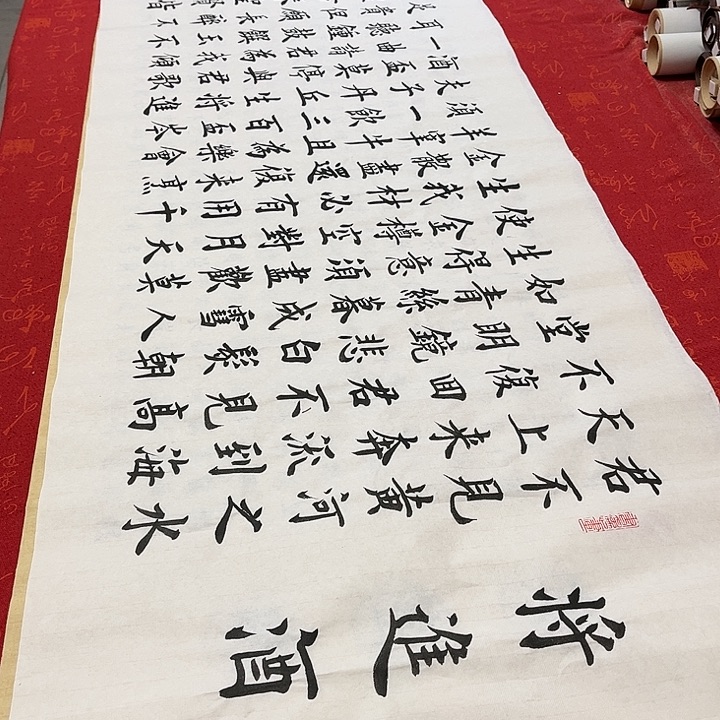 將進酒
君不見黃河之水
天上來奔流到海
不復回君不見高
堂明鏡悲白髮朝
如青絲暮成雪人
生得意須盡歡莫
使金樽空對月天
生我材必有用千
金散盡還復來烹
羊宰牛且為樂會
須一飲三百盃岑
夫子丹丘生將進
酒盃莫停與君歌
一曲
耳聽鐘鼓